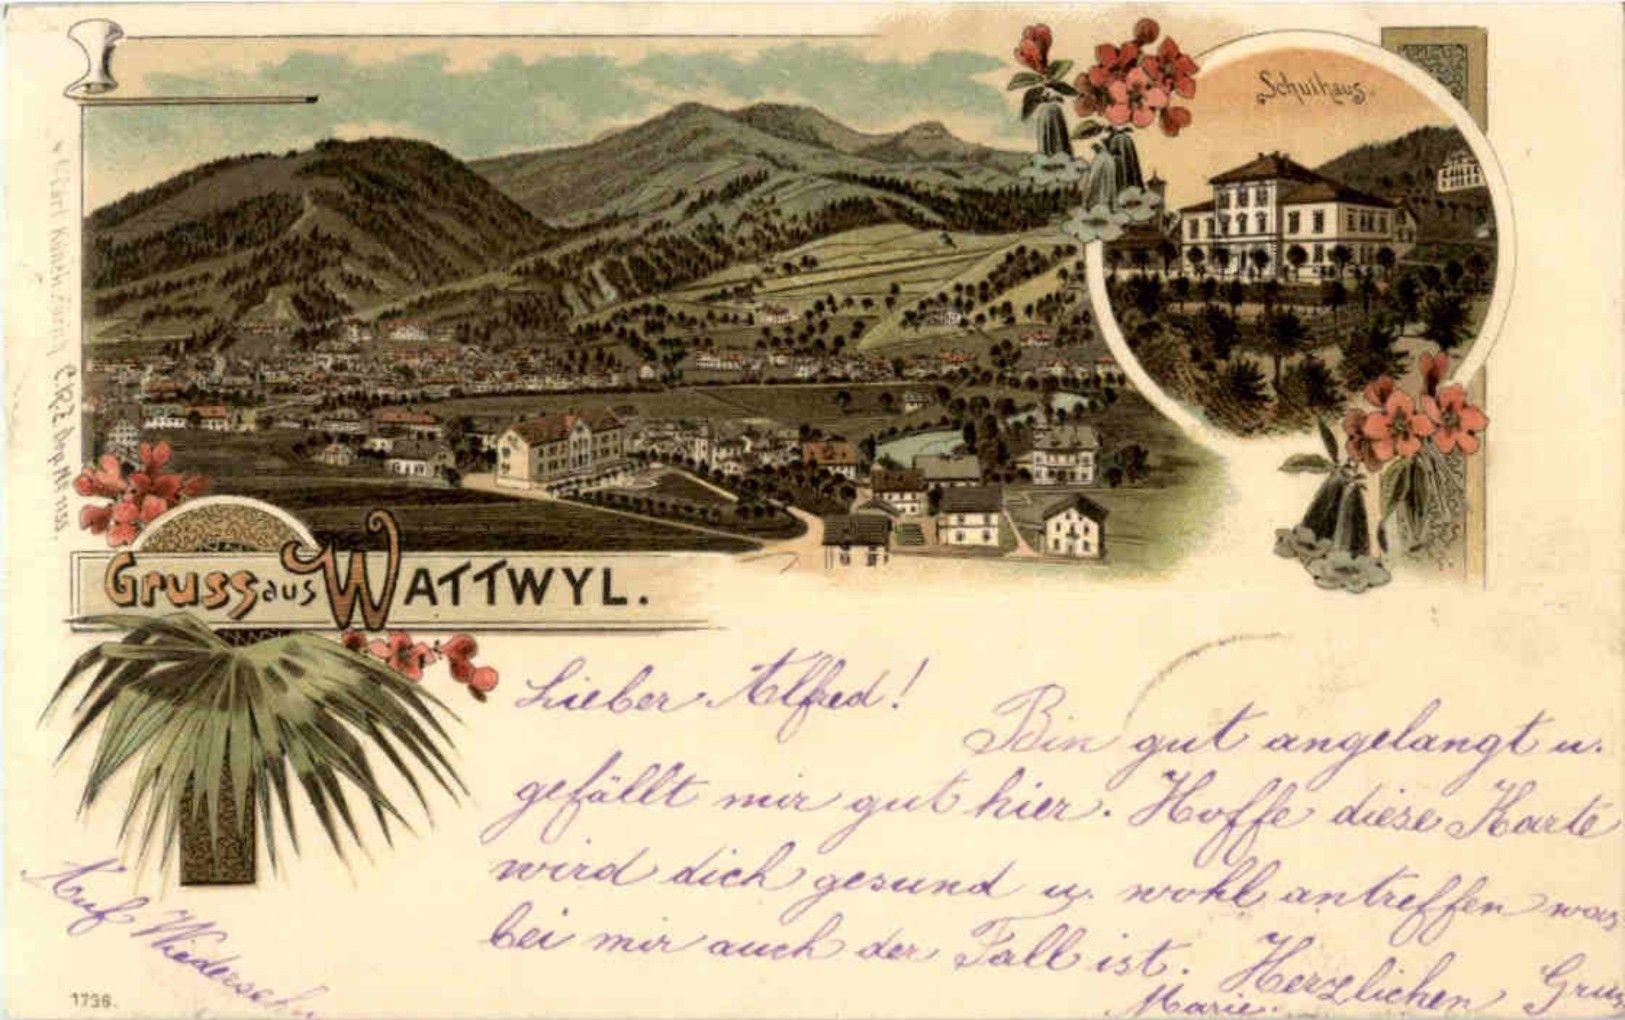 Schulhaus.
Gruss aus WATTWYL.
Lieber Alfred!
Bin gut angelangt u.
gefällt mir gut hier. Hoffe diese Karte
wird dich gesund u. wohl antreffen was
bei mir auch der Fall ist. Herzlichen Gruss
Marie.
Auf Wiedersehn
1736.